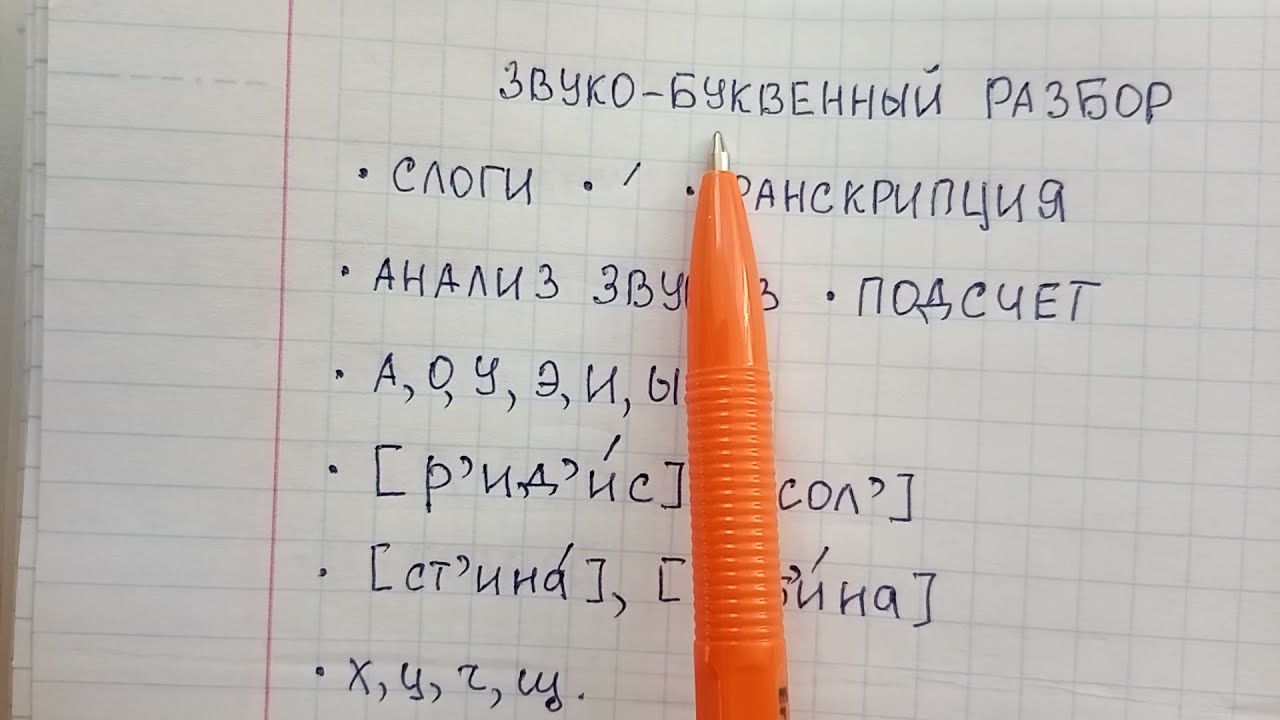 ЗВУКО-БУКВЕННЫЙ РАЗБОР
· СЛОГИ · ˊ ·
· АНАЛИЗ · ПОДСЧЕТ
· А, О, У, Э, И, Ы
· [р’ид’и́с] сол’]
· [ст’ина́], [ и́на]
· х, ц, ч, щ.